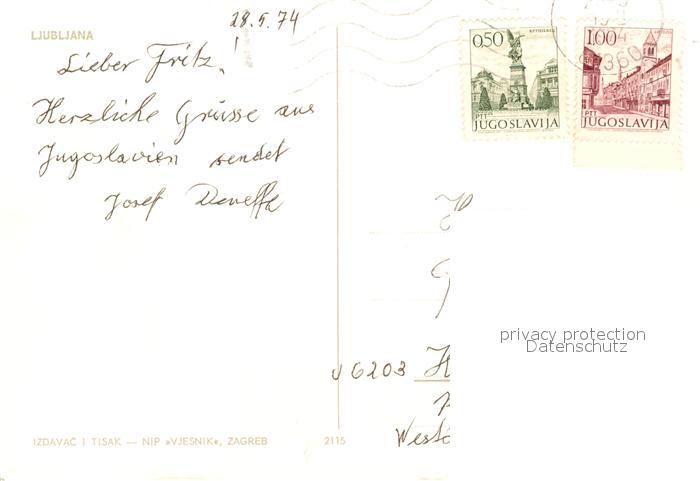 28.5.74
LJUBLJANA
Lieber Fritz!
Herzliche Grüsse aus
Jugoslavien sendet
Josef
0,50
PTT JUGOSLAVIJA
1.00
PTT JUGOSLAVIJA
privacy protection
Datenschutz
6203
IZDAVAČ I TISAK — NIP »VJESNIK«, ZAGREB 2115